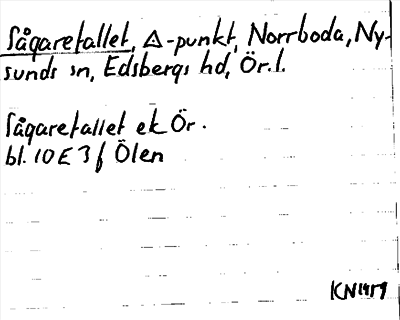 Sågaretallet, △-punkt, Norrboda, Ny-
sunds sn, Edsbergs hd, Ör.l.
Sågaretallet ek Ör.
bl. 10 E 3 f Ölen